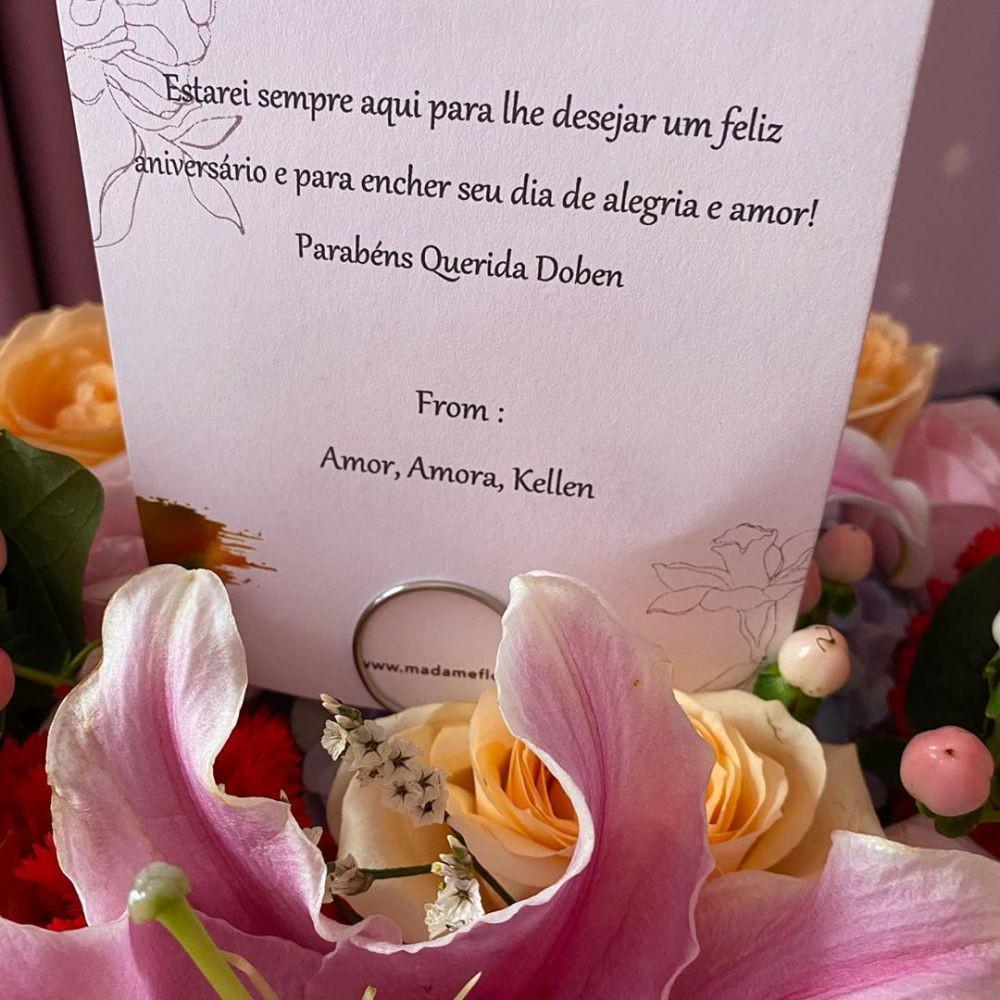 Estarei sempre aqui para lhe desejar um feliz
aniversário e para encher seu dia de alegria e amor!
Parabéns Querida Doben
From :
Amor, Amora, Kellen